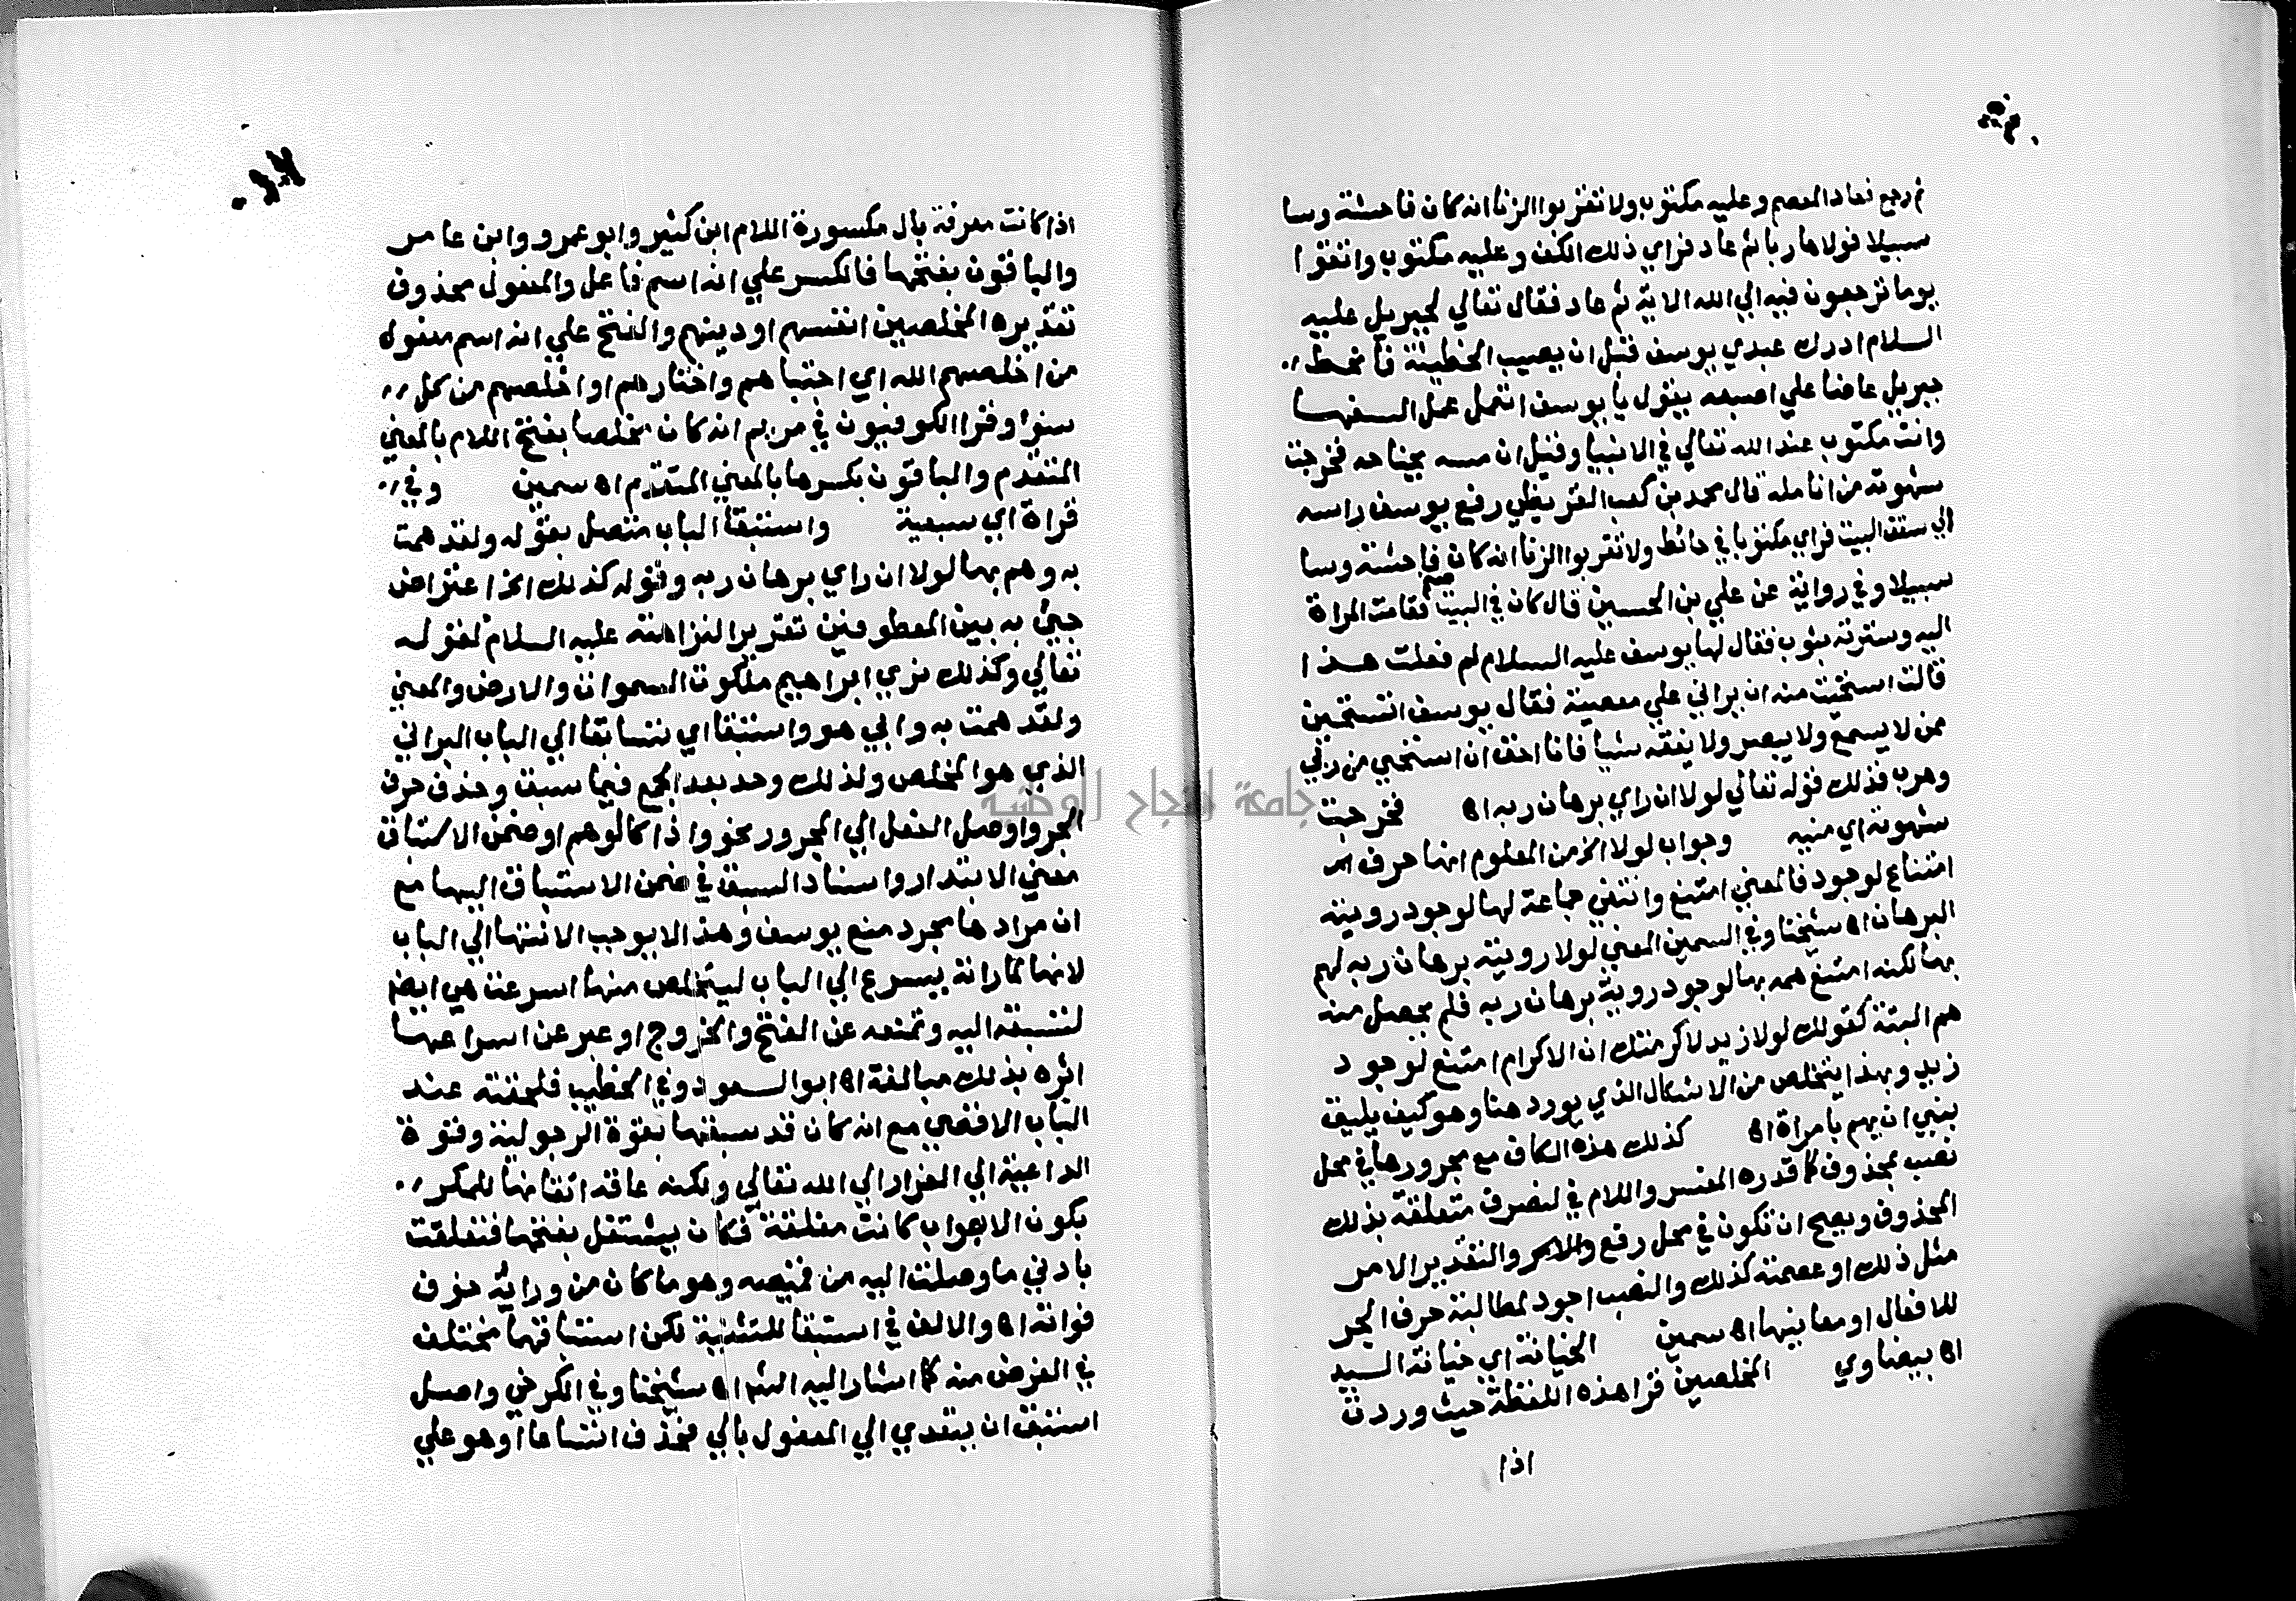 ثم رجع فعاد المعصم وعليه مكتوب ولا تقربوا الزنا انه كان فاحشة وسا
سبيلا فولا هاربا ثم عاد فراي ذلك الكف وعليه مكتوب واتقوا
يوما ترجعون فيه الي الله الاية ثم عاد فقال تعالي لجبريل عليه
السلام ادرك عبدي يوسف قبل ان يصيب الخطيئة فانحط
جبريل عاضا علي اصبعه يقول يا يوسف اتعمل عمل السفها
وانت مكتوب عند الله تعالي في الانبيا وقيل ان مسه بجناحه فخرجت
شهوته من انامله قال محمد بن كعب القريظي رفع يوسف راسه
الي سقف البيت فراي مكتوبا في حائط ولا تقربوا الزنا انه كان فاحشة وسا
سبيلا وفي رواية عن علي بن الحسين قال كان في البيت صنم فقامت المراة
اليه وسترته بثوب فقال لها يوسف عليه السلام لم فعلت هذا
قالت استحيت منه ان يراني علي معصية فقال يوسف اتستحين
ممن لا يسمع ولا يبصر ولا يفقه شيا فانا احق ان استحي من ربي
وهرب فذلك قوله تعالي لولا ان راي برهان ربه اه فخرجت
شهوته اي منيه وجواب لولا الخ من المعلوم انها حرف
امتناع لوجود فالمعني امتنع وانتفي جماعه لها لوجود روية
البرهان اه شيخنا وفي السمين المعني لولا روية برهان ربه لهم
بها لكنه امتنع همه بها لوجود روية برهان ربه فلم يحصل منه
هم البتة كقولك لولا زيد لاكرمتك ان الاكرام امتنع لوجود
زيد وبهذا يتخلص من الاشكال الذي يورد هنا وهو كيف يليق
بنبي ان يهم بامراة اه كذلك هذه الكاف مع مجرورها في محل
نصب بمحذوف كما قدره المفسر واللام في لنصرف متعلقة بذلك
المحذوف ويصح ان تكون في محل رفع والتقدير الامر
مثل ذلك او عصمته كذلك والنصب اجود لمطالبة حرف الجر
للافعال او معانيها اه سمين الخيانة اي خيانة السيد
اه بيضاوي المخلصين قرا هذه اللفظة حيث وردت
اذا
اذا كانت معرفة بال مكسورة اللام ابن كثير وابو عمرو وابن عامر
والباقون بفتحها فالكسر علي انه اسم فاعل والمفعول محذوف
تقديره المخلصين انفسهم او دينهم والفتح علي انه اسم مفعول
من اخلصهم الله اي اجتباهم واختارهم او اخلصهم من كل
سوء وقرا الكوفيون في مريم انه كان مخلصا بفتح اللام بالمعني
المتقدم والباقون بكسرها بالمعني المتقدم اه سمين وفي
قراة اي سبعية واستبقا الباب متصل بقوله ولقد همت
به وهم بها لولا ان راي برهان ربه وقوله كذلك الخ اعتراض
جيئ به بين المعطوفين تقريرا لنزاهته عليه السلام كقوله
تعالي وكذلك نري ابراهيم ملكوت السموات والارض والمعني
ولقد همت به وابي هو واستبقا اي تسابقا الي الباب البراني
الذي هو المخلص ولذلك وحد بعد الجمع فيما سبق وحذف حرف
الجر واوصل الفعل الي المجرور نحو واذا كالوهم او ضمن الاستباق
معني الابتدار واسناد السبق في ضمن الاستباق اليها مع
ان مرادها مجرد منع يوسف وهذا لا يوجب الانتها الي الباب
لانها لما راته يسرع الي الباب ليتخلص منها اسرعت هي ايضا
لتسبقه اليه وتمنعه عن الفتح والخروج او عبر عن اسراعها
اثره بذلك مبالغة اه ابو السعود وفي الخطيب فلحقته عند
الباب الاقصي مع انه كان قد سبقها بقوة الرجولية وقوة
الداعية الي الفرار الي الله تعالي ولكنه عاقه اتقانها للمكر
بكون الابواب كانت مغلقة فكان يشتغل بفتحها فتعلقت
بادني ما وصلت اليه من قميصه وهو ما كان من ورايه خوف
فواته اه والالف في استبقا للتثنية لكن استباقها مختلف
في الغرض منه كما اشار اليه الش اه شيخنا وفي الكرخي واصل
استبق ان يتعدي الي المفعول بالي فحذف اتساعا او هو علي
جامعة النجاح الوطنية